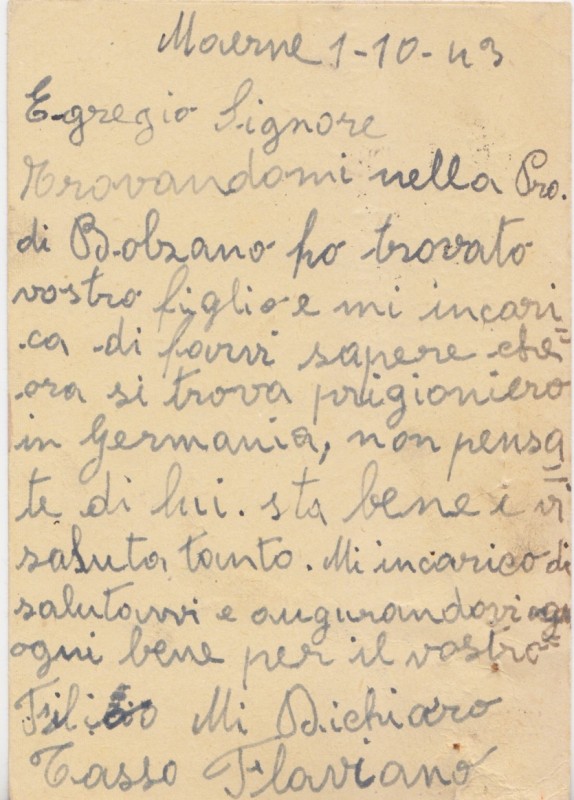 Maerne 1-10-43
Egregio Signore
Trovandomi nella Pro.
di Bolzano ho trovato
vostro figlio e mi incari
ca di farvi sapere che=
ora si trova prigioniero
in Germania, non pensa
te di lui. sta bene e vi
saluta tanto. Mi incarico di
salutarvi e augurandovi
ogni bene per il vostro=
Filio Mi Dichiaro
Tasso Flaviano